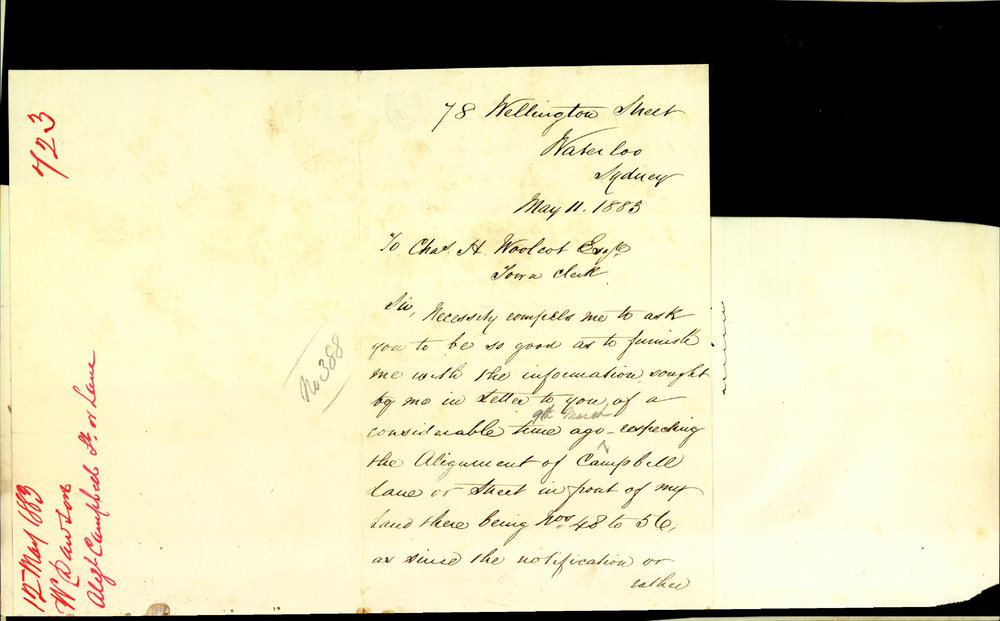 78 Wellington Street
Waterloo
Sydney
May 11. 1883
To Chas. H. Woolcot Esqre
Town Clerk
Sir, Necessity compels me to ask
you to be so good as to furnish
me with the information, sought
by me in Letter to you, of a
9th March
considerable time ago - respecting
the Alignment of Campbell
Lane or Street in front of my
Land there being Nos 48 to 56,
as since the notification or
rather
No 388
723
12 May 1883
W Dawson
Aligt Campbell St. or Lane